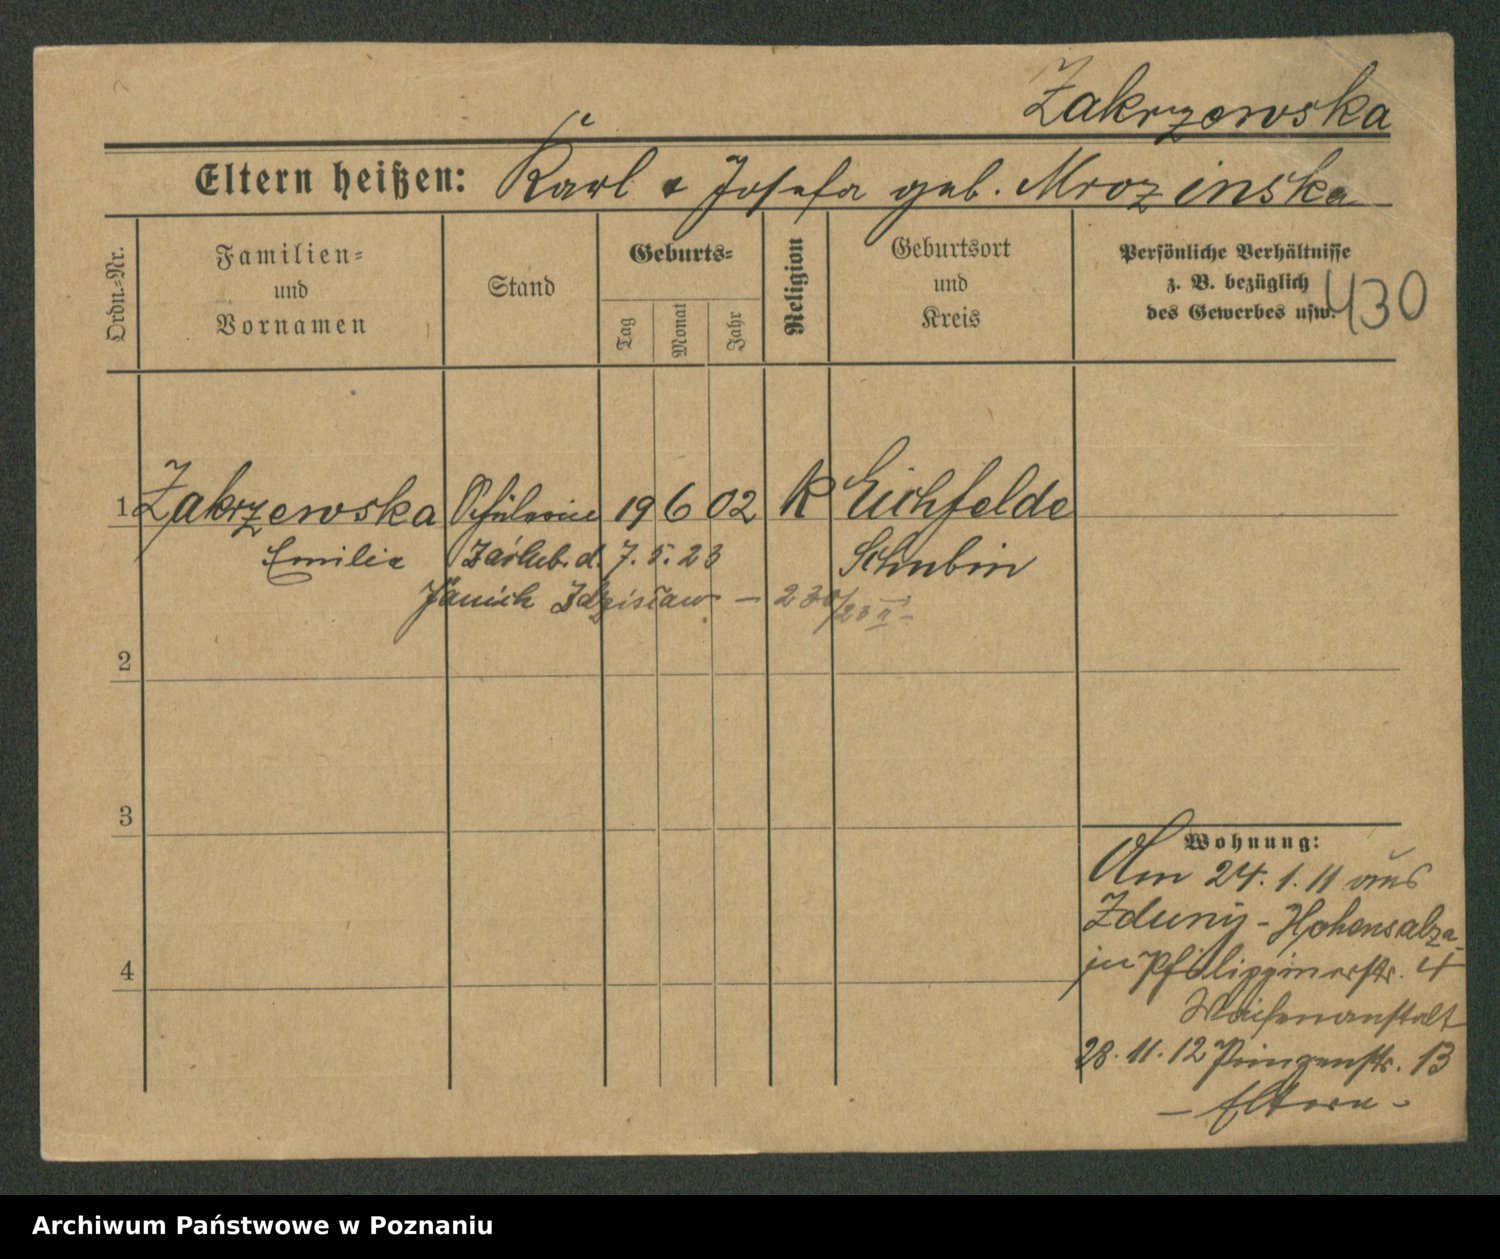 Zakrzewska
Eltern heißen: Karl & Josefa geb. Mrozinska
Ordn.-Nr.
Familien-
und
Vornamen
Stand
Geburts-
Tag
Monat
Jahr
Religion
Geburtsort
und
Kreis
Persönliche Verhältnisse
z. B. bezüglich
des Gewerbes usw.
430
1 Zakrzewska Schülerin 19 6 02 K Eichfelde
Emilie Zaślub. d. 7. 5. 23 Schubin
Jänich Zdzisław - 230/23 II -
2
3
4
Wohnung:
Am 24. 1. 11 aus
Zduny - Hohensalza
in Philippinerstr. 4
Waisenanstalt
28. 11. 12 Prinzenstr. 13
- Eltern -
Archiwum Państwowe w Poznaniu